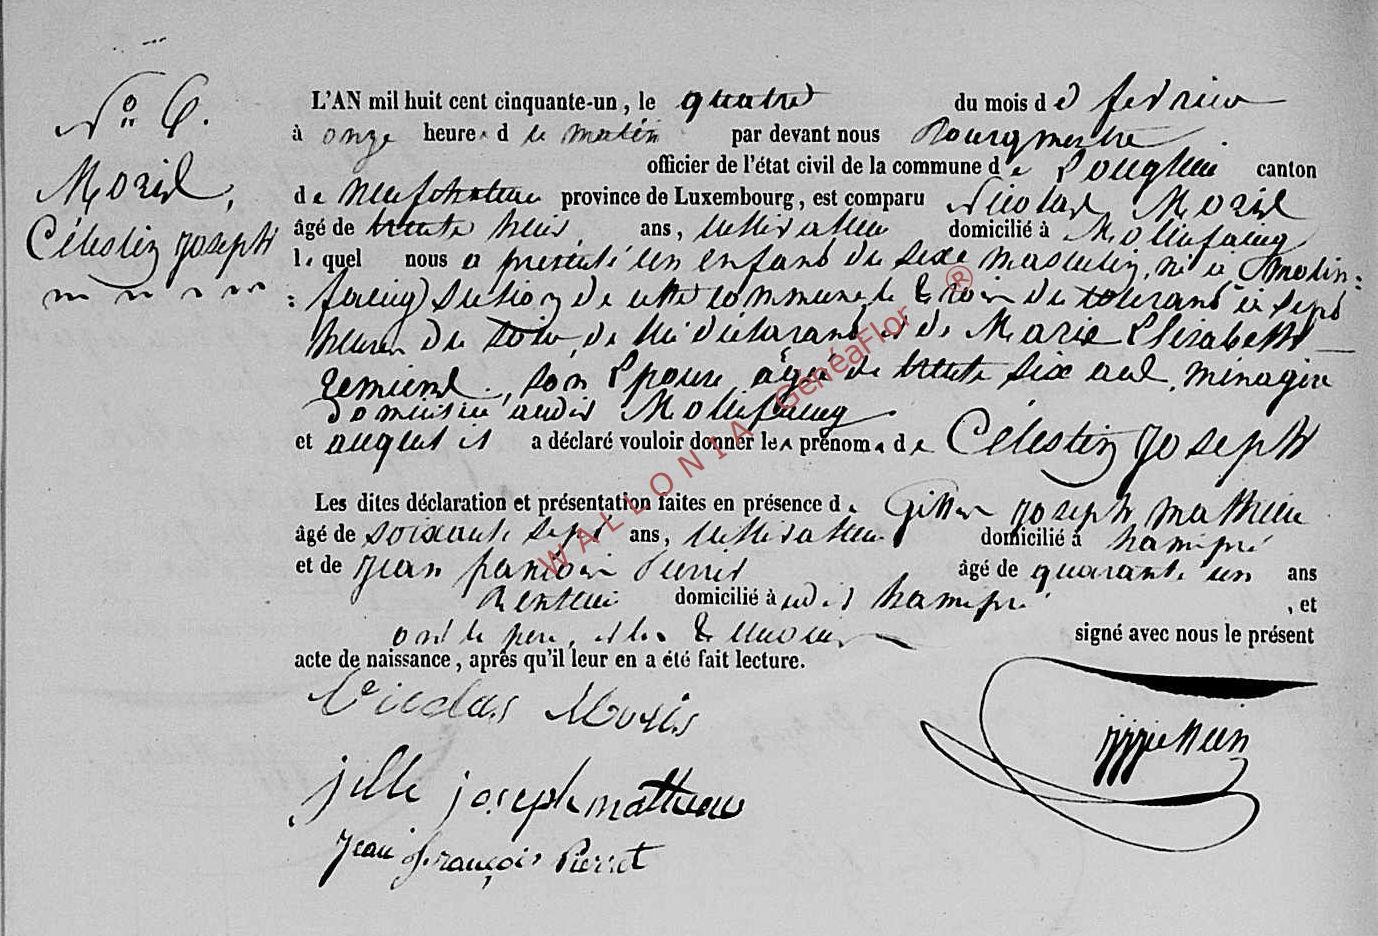 N° 6.
Moris,
Célestin Joseph
L'AN mil huit cent cinquante-un, le quatre du mois de fevrier
à onze heures du matin par devant nous Bourgmestre
officier de l'état civil de la commune de Longlier canton
de Neufchateau province de Luxembourg, est comparu Nicolas Moris
âgé de trente ans, cultivateur domicilié à Molinfaing
lequel nous a presenté un enfant du sexe masculin, né à Molin-
faing section de cette commune le trois du courant à sept
heures du soir, de lui déclarant et de Marie Elisabeth
son Epouse, agée de trente six ans, ménagère
domiciliée audit Molinfaing
et auquel il a déclaré vouloir donner les prénoms de Célestin Joseph
Les dites déclaration et présentation faites en présence de Gille Joseph Mathieu
âgé de soixante sept ans, cultivateur domicilié à hamipré
et de Jean françois Pierret âgé de quarante un ans
Rentier domicilié à udit hamipré , et
ont le pere, et les temoins signé avec nous le présent
acte de naissance, après qu'il leur en a été fait lecture.
Nicolas Moris
jille joseph mathieu
Jean françois Pierret
WALLONIA GenéaFlor ®